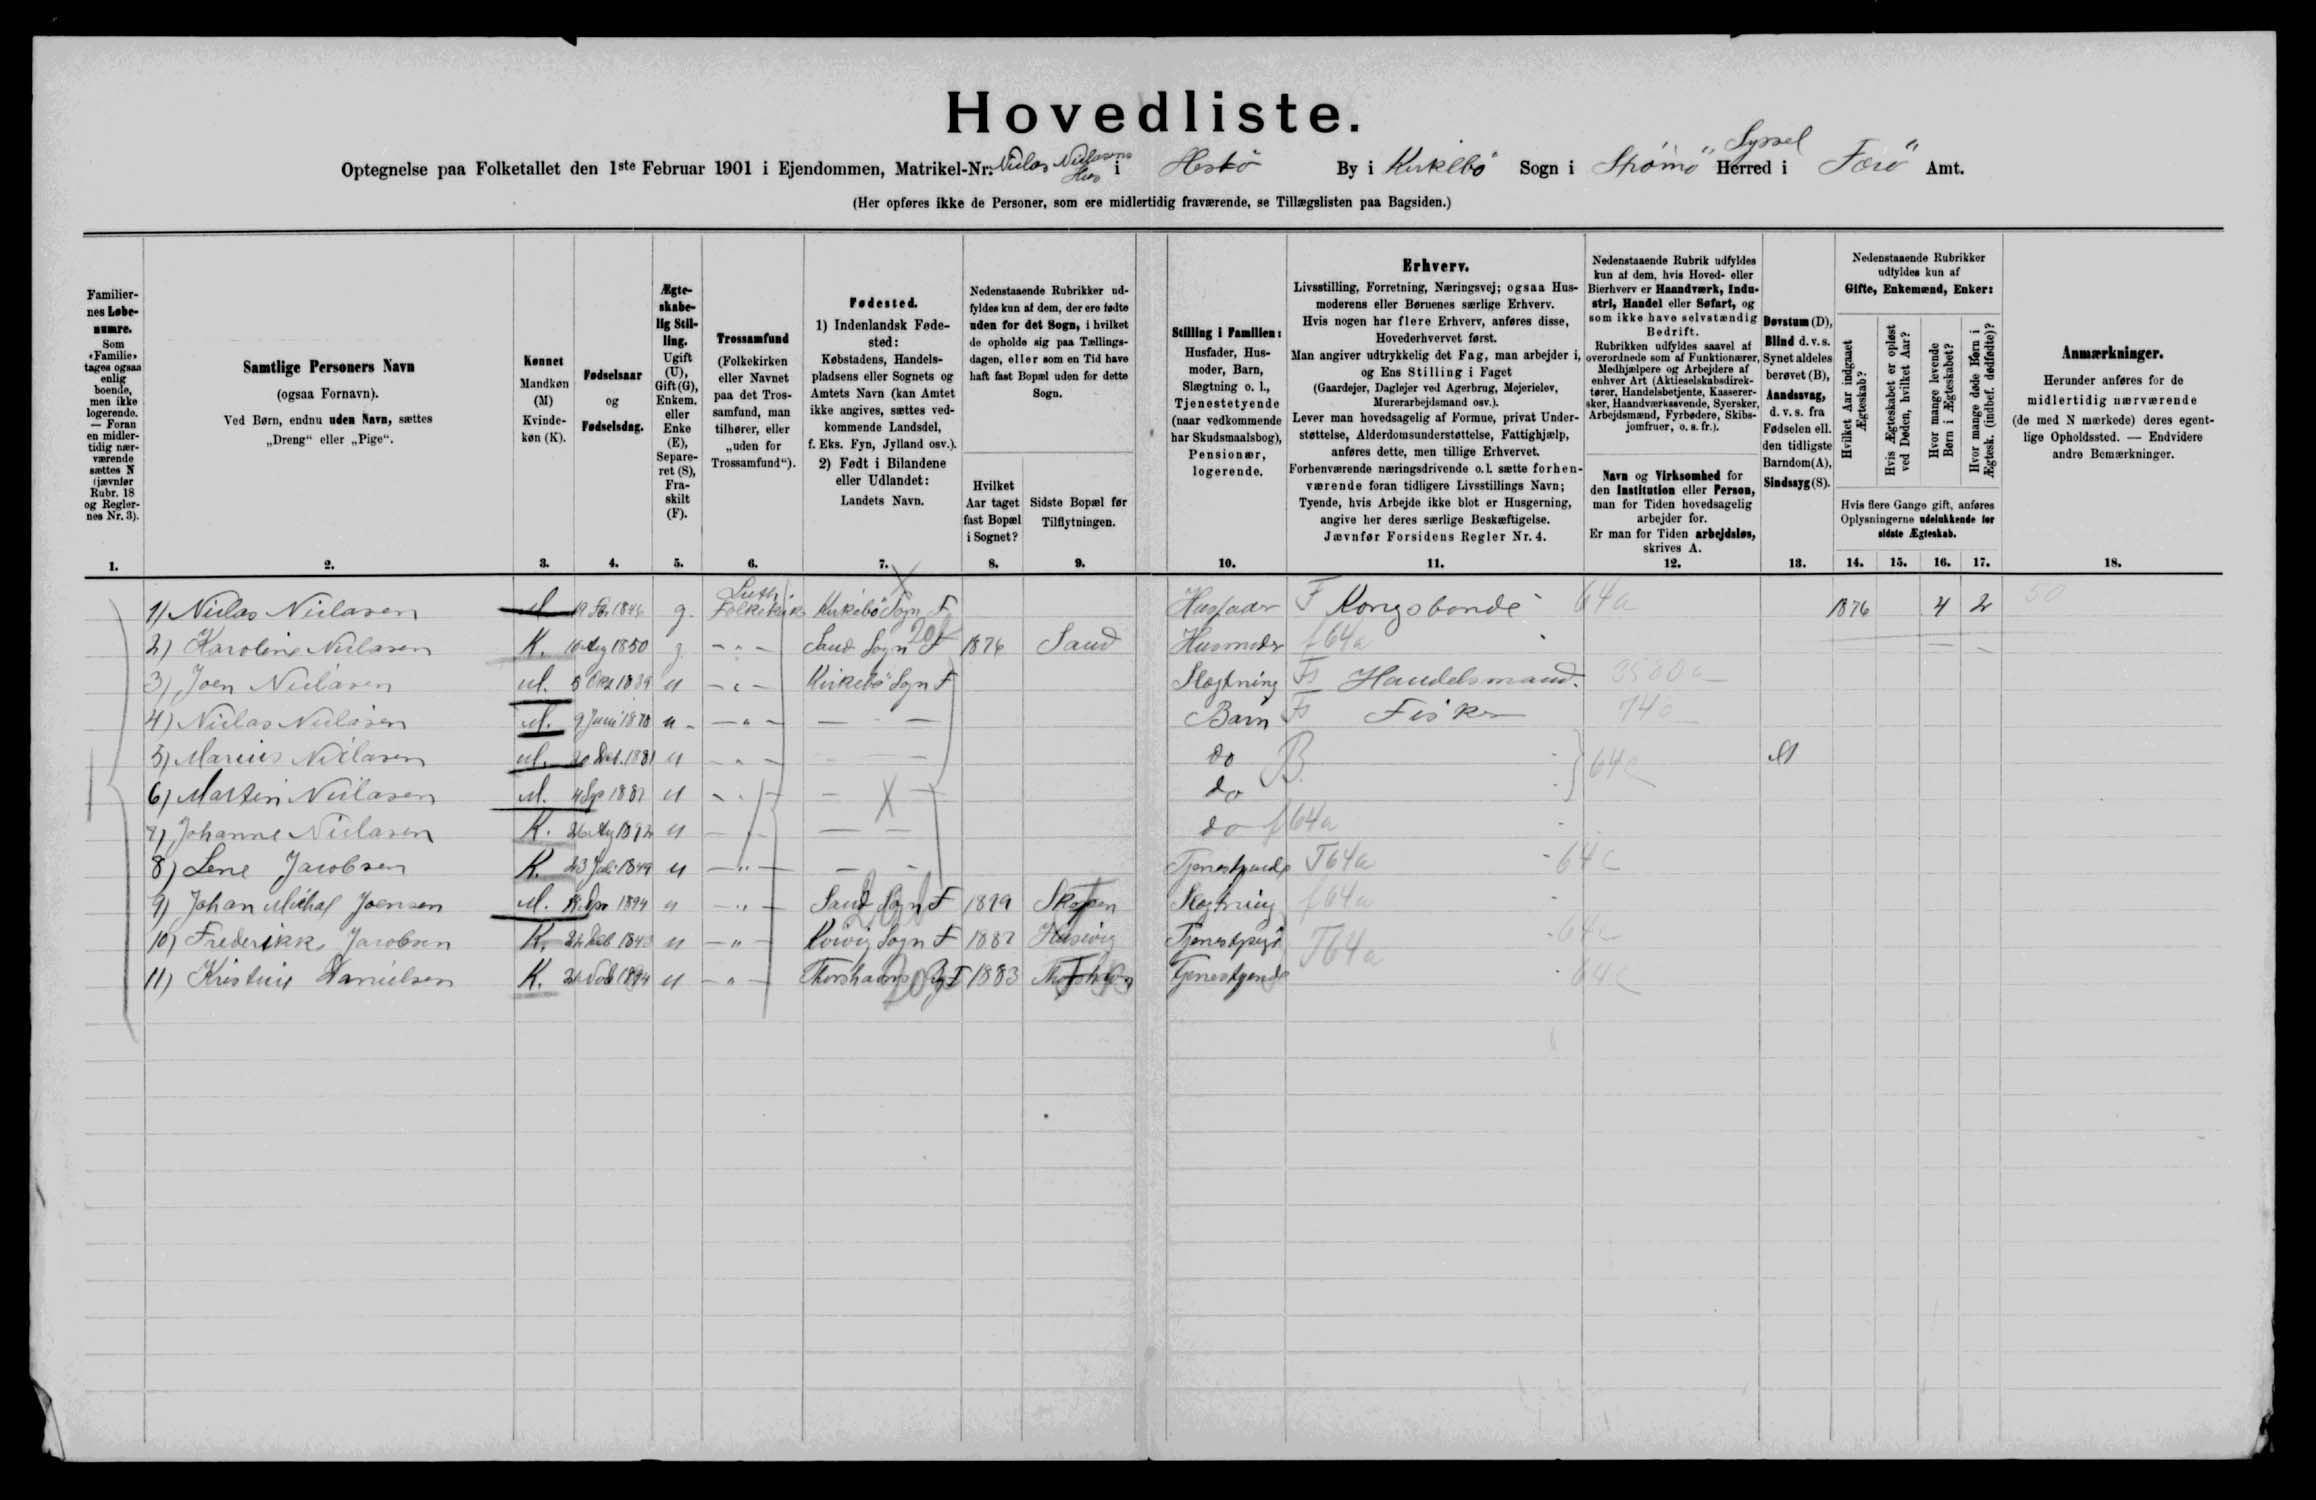 Hovedliste.
Optegnelse paa Folketallet den 1ste Februar 1901 i Ejendommen, Matrikel-Nr. Niclas Niclasens Hus i Hestö By i Kirkebö Sogn i Strömö Herred Syssel i Færö Amt.
(Her opføres ikke de Personer, som ere midlertidig fraværende, se Tillægslisten paa Bagsiden.)
Familiernes Løbenumre.
Som «Familie» tages ogsaa enlig boende, men ikke logerende. — Foran en midlertidig nærværende sættes N (jævnfør Rubr. 18 og Reglernes Nr. 3).
Samtlige Personers Navn
(ogsaa Fornavn).
Ved Børn, endnu uden Navn, sættes
„Dreng“ eller „Pige“.
Kønnet
Mandkøn (M)
Kvindekøn (K).
Fødselsaar
og
Fødselsdag.
Ægteskabelig Stilling.
Ugift (U), Gift (G), Enkem. eller Enke (E), Separeret (S), Fraskilt (F).
Trossamfund
(Folkekirken eller Navnet paa det Trossamfund, man tilhører, eller „uden for Trossamfund“).
Fødested.
1) Indenlandsk Fødested:
Købstadens, Handelspladsens eller Sognets og Amtets Navn (kan Amtet ikke angives, sættes vedkommende Landsdel, f. Eks. Fyn, Jylland osv.).
2) Født i Bilandene eller Udlandet:
Landets Navn.
Nedenstaaende Rubrikker udfyldes kun af dem, der ere fødte uden for det Sogn, i hvilket de opholde sig paa Tællingsdagen, eller som en Tid have haft fast Bopæl uden for dette Sogn.
Hvilket Aar taget fast Bopæl i Sognet?
Sidste Bopæl før Tilflytningen.
Stilling i Familien:
Husfader, Husmoder, Barn, Slægtning o. l., Tjenestetyende (naar vedkommende har Skudsmaalsbog), Pensionær, logerende.
Erhverv.
Livsstilling, Forretning, Næringsvej; ogsaa Husmoderens eller Børnenes særlige Erhverv.
Hvis nogen har flere Erhverv, anføres disse, Hovederhvervet først.
Man angiver udtrykkelig det Fag, man arbejder i, og Ens Stilling i Faget
(Gaardejer, Daglejer ved Agerbrug, Mejerielev, Murerarbejdsmand osv.).
Lever man hovedsagelig af Formue, privat Understøttelse, Alderdomsunderstøttelse, Fattighjælp, anføres dette, men tillige Erhvervet.
Forhenværende næringsdrivende o. l. sætte forhenværende foran tidligere Livsstillings Navn;
Tyende, hvis Arbejde ikke blot er Husgerning, angive her deres særlige Beskæftigelse.
Jævnfør Forsidens Regler Nr. 4.
Nedenstaaende Rubrik udfyldes kun af dem, hvis Hoved- eller Bierhverv er Haandværk, Industri, Handel eller Søfart, og som ikke have selvstændig Bedrift.
Rubrikken udfyldes saavel af overordnede som af Funktionærer, Medhjælpere og Arbejdere af enhver Art (Aktieselskabsdirektører, Handelsbetjente, Kasserersker, Haandværkssvende, Syersker, Arbejdsmænd, Fyrbødere, Skibsjomfruer, o. s. fr.).
Navn og Virksomhed for den Institution eller Person, man for Tiden hovedsagelig arbejder for.
Er man for Tiden arbejdsløs, skrives A.
Døvstum (D), Blind d. v. s. Synet aldeles berøvet (B), Aandssvag, d. v. s. fra Fødselen ell. den tidligste Barndom (A), Sindssyg (S).
Nedenstaaende Rubrikker udfyldes kun af
Gifte, Enkemænd, Enker:
Hvilket Aar indgaaet Ægteskab?
Hvis Ægteskabet er opløst ved Døden, hvilket Aar?
Hvor mange levende Børn i Ægteskabet?
Hvor mange døde Børn i Ægtesk. (indbef. dødfødte)?
Hvis flere Gange gift, anføres Oplysningerne udelukkende for sidste Ægteskab.
Anmærkninger.
Herunder anføres for de midlertidig nærværende (de med N mærkede) deres egentlige Opholdssted. — Endvidere andre Bemærkninger.
1. 2. 3. 4. 5. 6. 7. 8. 9. 10. 11. 12. 13. 14. 15. 16. 17. 18.
1) Niclas Niclasen M 1846 g. Luth. Folkekirke Kirkebö Sogn F Husfader F Kongsbonde 64a 1876 4 2 50
2) Karoline Niclasen K. 10 Aug 1850 g. — " — Sand Sogn F 1876 Sand Husmoder f 64a
3) Joen Niclasen M. 8 Okt 1839 u — " — Kirkebö Sogn F Slægtning Fs Handelsmand.
4) Niclas Niclasen M. 9 Juni 1878 u — " — — " — Barn Fs Fisker 74c
5) Marius Niclasen M. 20 1881 u — " — — do B. 64c
6) Martin Niclasen M. 4 Sep 1887 u — " — — " — do
7) Johanne Niclasen K. 26 Aug 1892 u — " — — " — do f 64a
8) Lene Jacobsen K. 23 Juli 1849 u — " — — " — Tjenestyende T 64a 64c
9) Johan Michal Joensen M. 1894 u — " — Sand Sogn F 1899 Skopen Slægtning f 64a
10) Frederikke Jacobsen K. 1843 u — " — Kvivig Sogn F 1887 Husevig Tjenestpige T 64a 64c
11) Kristine Danielsen K. 1894 u — " — Thorshavns By F 1883 Thorshavn Tjenestyende 64c